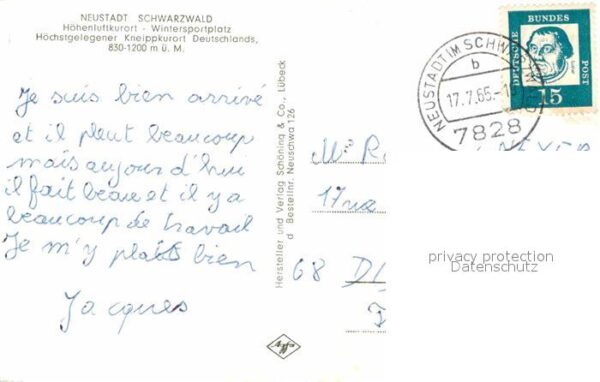 NEUSTADT SCHWARZWALD
Höhenluftkurort - Wintersportplatz
Höchstgelegener Kneippkurort Deutschlands,
830-1200 m ü. M.
Je suis bien arrivé
et il pleut beaucoup
mais aujourd'hui
il fait beau et il y a
beaucoup de travail
Je m'y plais bien
Jacques
Hersteller und Verlag Schöning & Co., Lübeck
d Bestellnr. Neuschwa 126
Agfa
NEUSTADT IM SCHW
b
17.7.65-1
7828
DEUTSCHE BUNDES POST
Luther
15
17 rue
68
privacy protection
Datenschutz